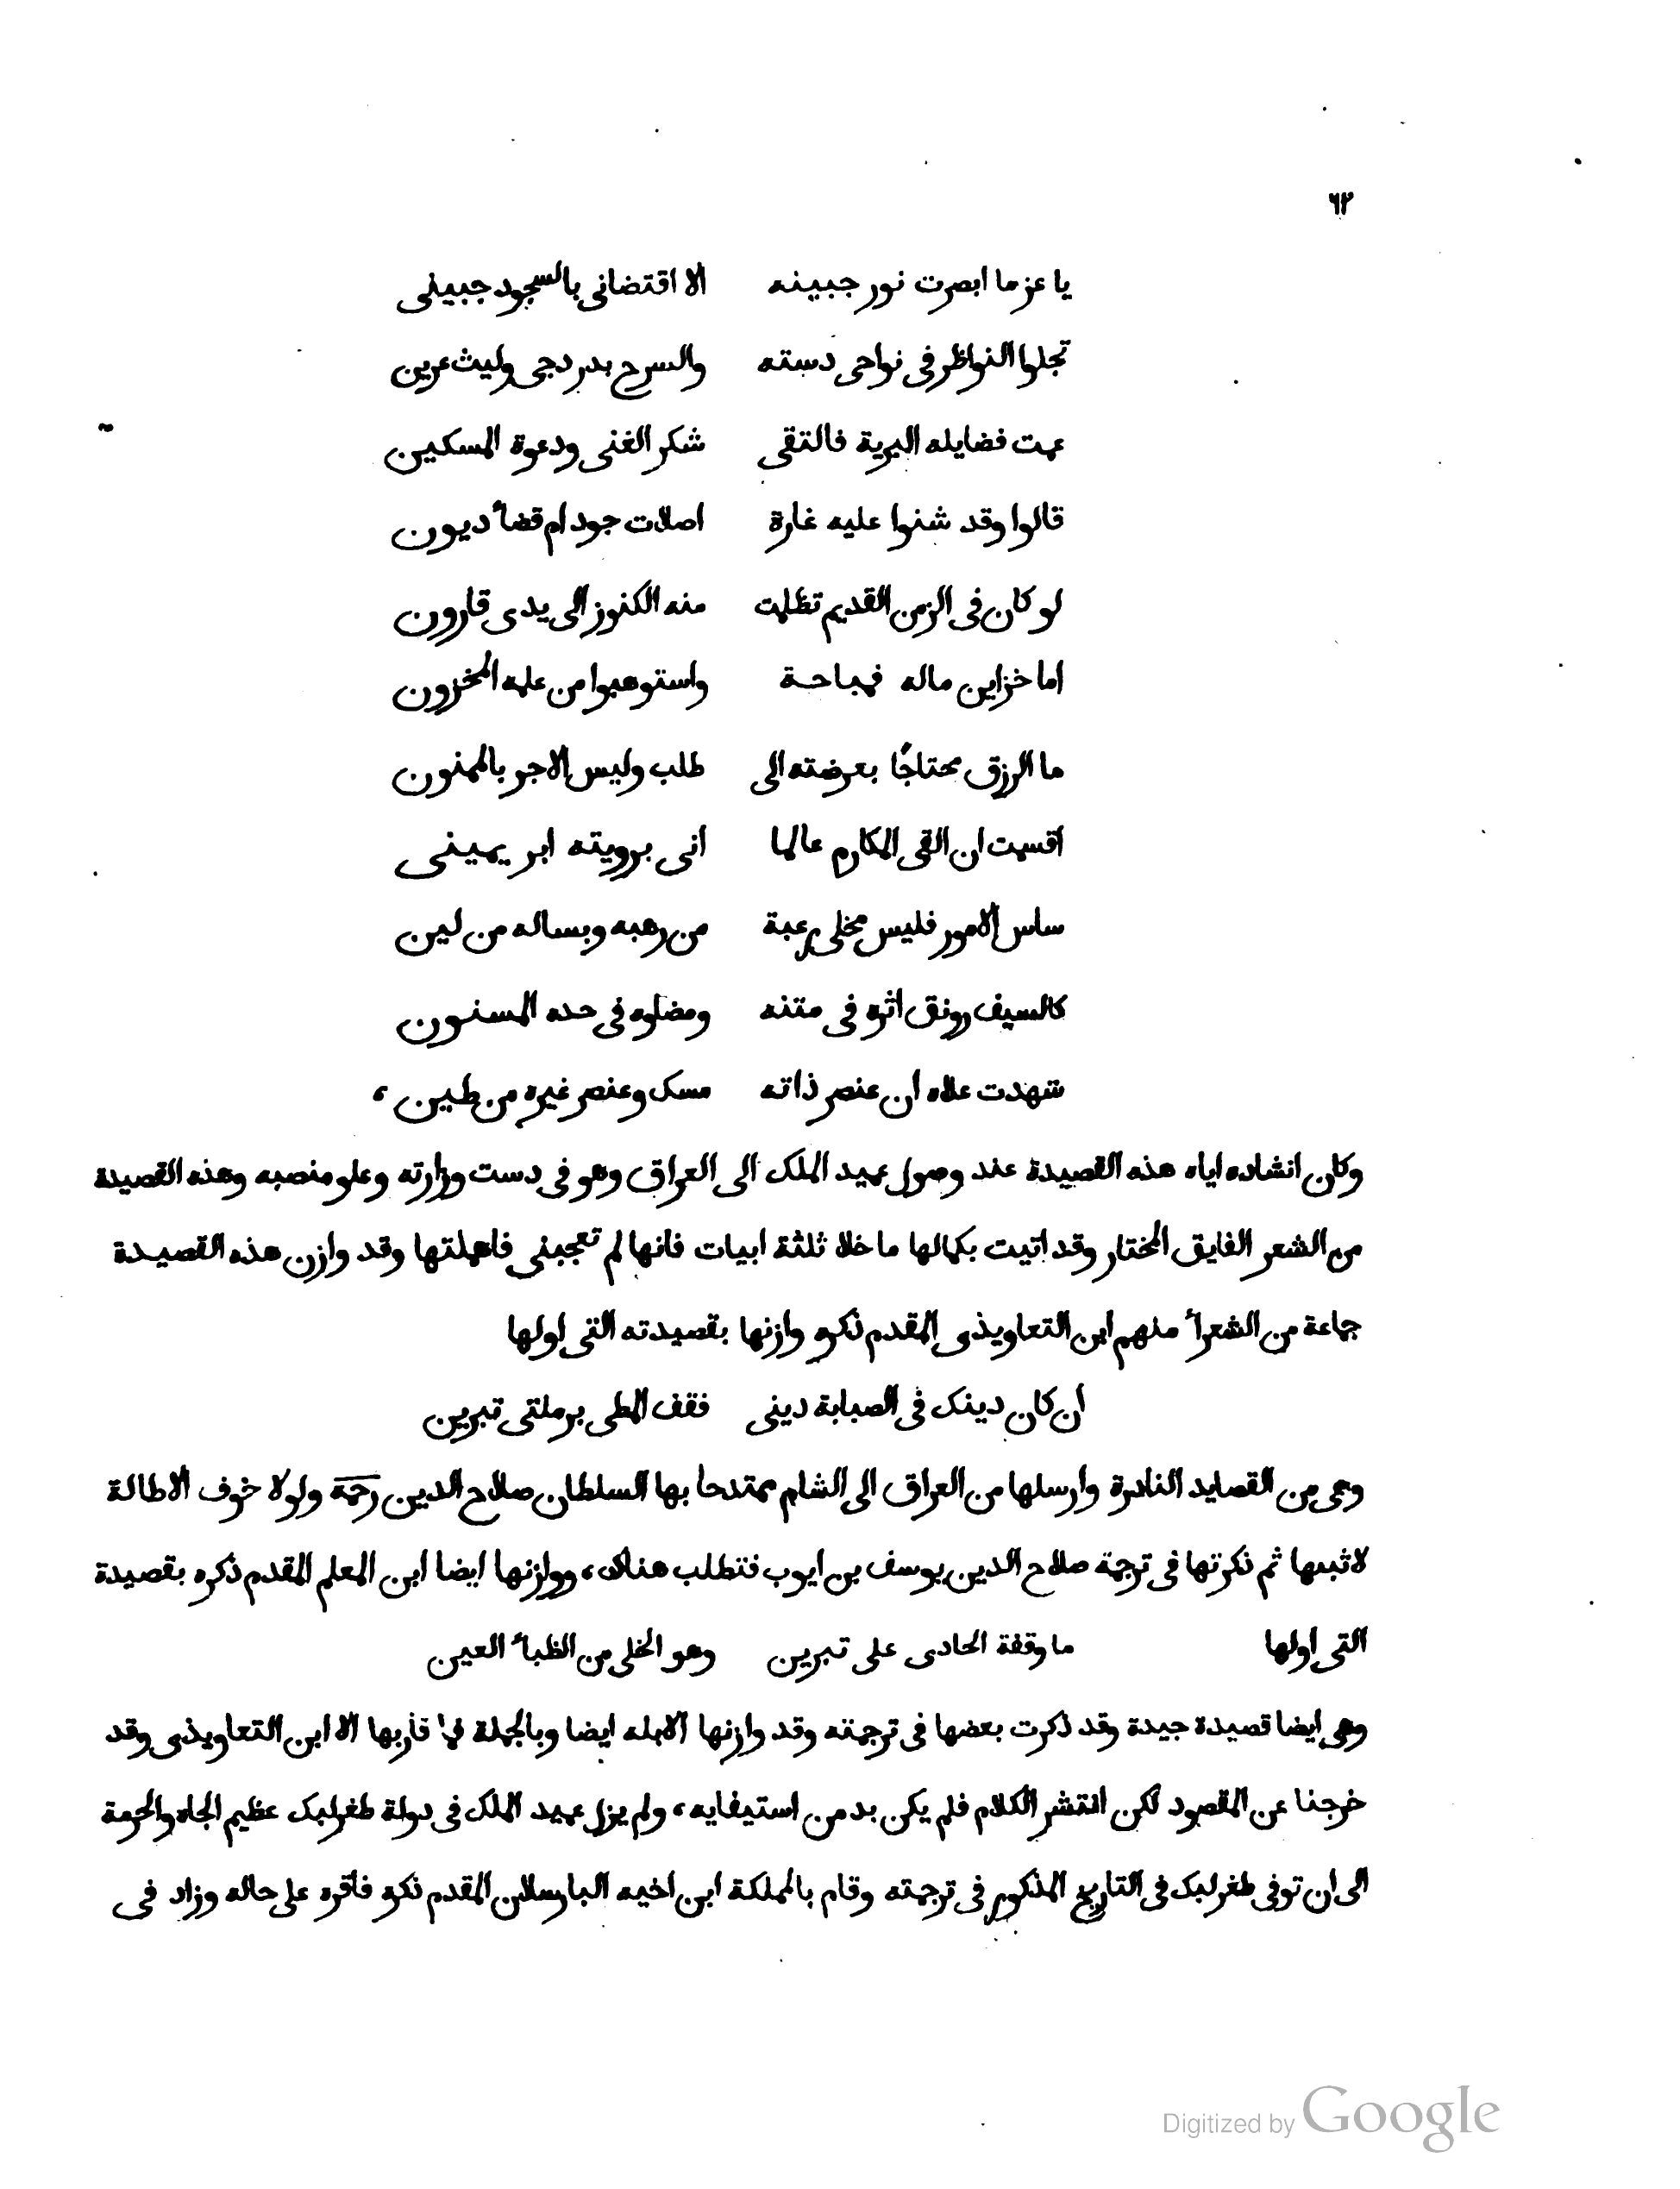 ٦٢
يا عز ما ابصرت نور جبينه الا اقتضانى بالسجود جبينى
تجلوا النواظر فى نواحى دسته والسرج بدر دجى وليث عرين
عمت فضايله البرية فالتقى شكر الغنى ودعوة المسكين
قالوا وقد شنوا عليه غارة اصلات جود ام قضاء ديون
لو كان فى الزمن القديم تظلمت منه الكنوز الى يدى قارون
اما خزاين ماله فمباحة واستوهبوا من علمه المخزون
ما الرزق محتاجًا بعرضته الى طلب وليس الاجر بالممنون
اقسمت ان القى المكارم عالما انى برويته ابر يمينى
ساس الامور فليس مخلى رعبة من رهبه وبساله من لين
كالسيف رونق اثره فى متنه ومضاوه فى حده المسنون
شهدت علاه ان عنصر ذاته مسك وعنصر غيره من طين،
وكان انشاده اياه هذه القصيدة عند وصول عميد الملك الى العراق وهو فى دست وزارته وعلو منصبه وهذه القصيدة
من الشعر الفايق المختار وقد اتيت بكمالها ما خلا ثلثة ابيات فانها لم تعجبنى فاهملتها وقد وازن هذه القصيدة
جماعة من الشعراء منهم ابن التعاويذى المقدم ذكره وازنها بقصيدته التى اولها
ان كان دينك فى الصبابة دينى فقف المطى برملتى تبرين
وهى من القصايد النادرة وارسلها من العراق الى الشام ممتدحا بها السلطان صلاح الدين رحمه ولولا خوف الاطالة
لاثبتها ثم ذكرتها فى ترجمة صلاح الدين يوسف بن ايوب فتطلب هناك، ووازنها ايضا ابن المعلم المقدم ذكره بقصيدة
التى اولها ما وقفة الحادى على تبرين وهو الخلى من الظباء العين
وهى ايضا قصيدة جيدة وقد ذكرت بعضها فى ترجمته وقد وازنها الابله ايضا وبالجملة فما قاربها الا ابن التعاويذى وقد
خرجنا عن المقصود لكن انتشر الكلام فلم يكن بد من استيفايه، ولم يزل عميد الملك فى دولة طغرلبك عظيم الجاه والحرمة
الى ان توفى طغرلبك فى التاريخ المذكور فى ترجمته وقام بالمملكة ابن اخيه البارسلان المقدم ذكره فاقره على حاله وزاد فى
Digitized by Google